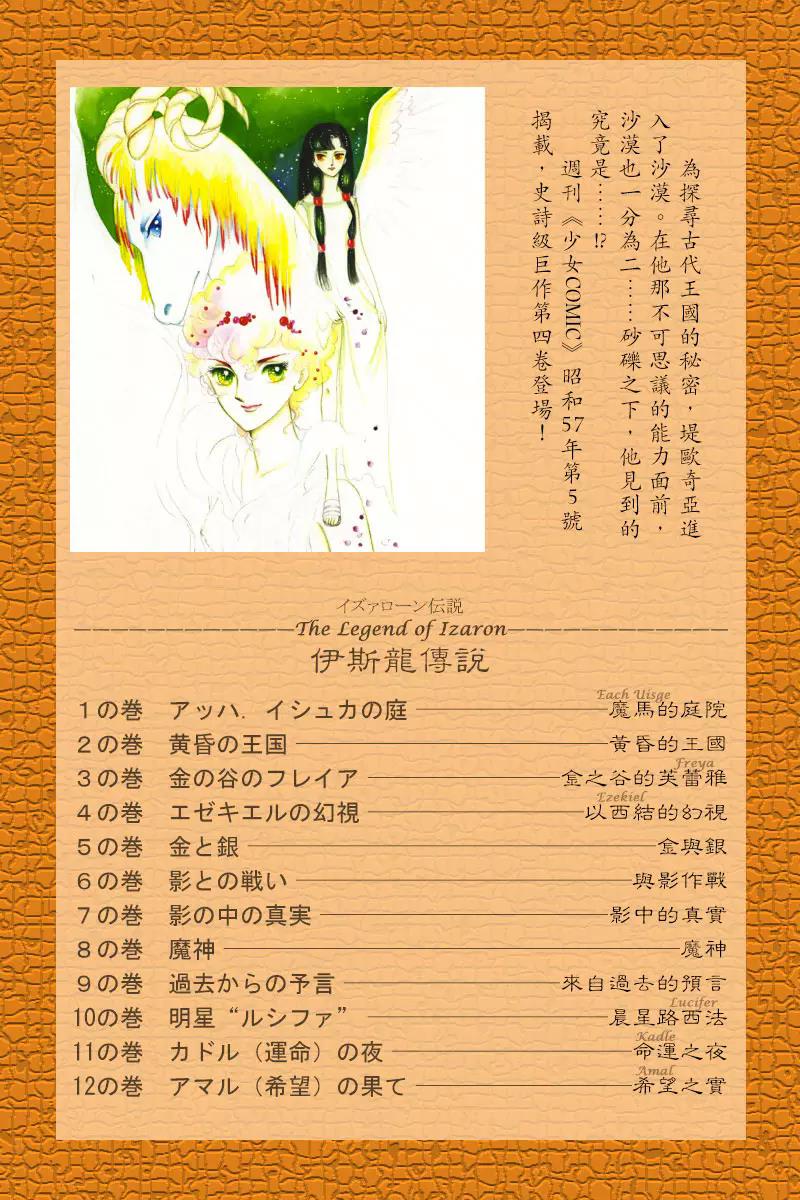 為探尋古代王國的秘密，堤歐奇亞進
入了沙漠。在他那不可思議的能力面前，
沙漠也一分為二……砂礫之下，他見到的
究竟是……!?
週刊《少女COMIC》昭和57年第5號
揭載，史詩級巨作第四卷登場！
イズァローン伝説
The Legend of Izaron
伊斯龍傳說
Each Uisge
1の巻 アッハ．イシュカの庭 魔馬的庭院
2の巻 黄昏の王国 黃昏的王國
Freya
3の巻 金の谷のフレイア 金之谷的芙蕾雅
Ezekiel
4の巻 エゼキエルの幻視 以西結的幻視
5の巻 金と銀 金與銀
6の巻 影との戦い 與影作戰
7の巻 影の中の真実 影中的真實
8の巻 魔神 魔神
9の巻 過去からの予言 來自過去的預言
Lucifer
10の巻 明星“ルシファ” 晨星路西法
Kadle
11の巻 カドル（運命）の夜 命運之夜
Amal
12の巻 アマル（希望）の果て 希望之實